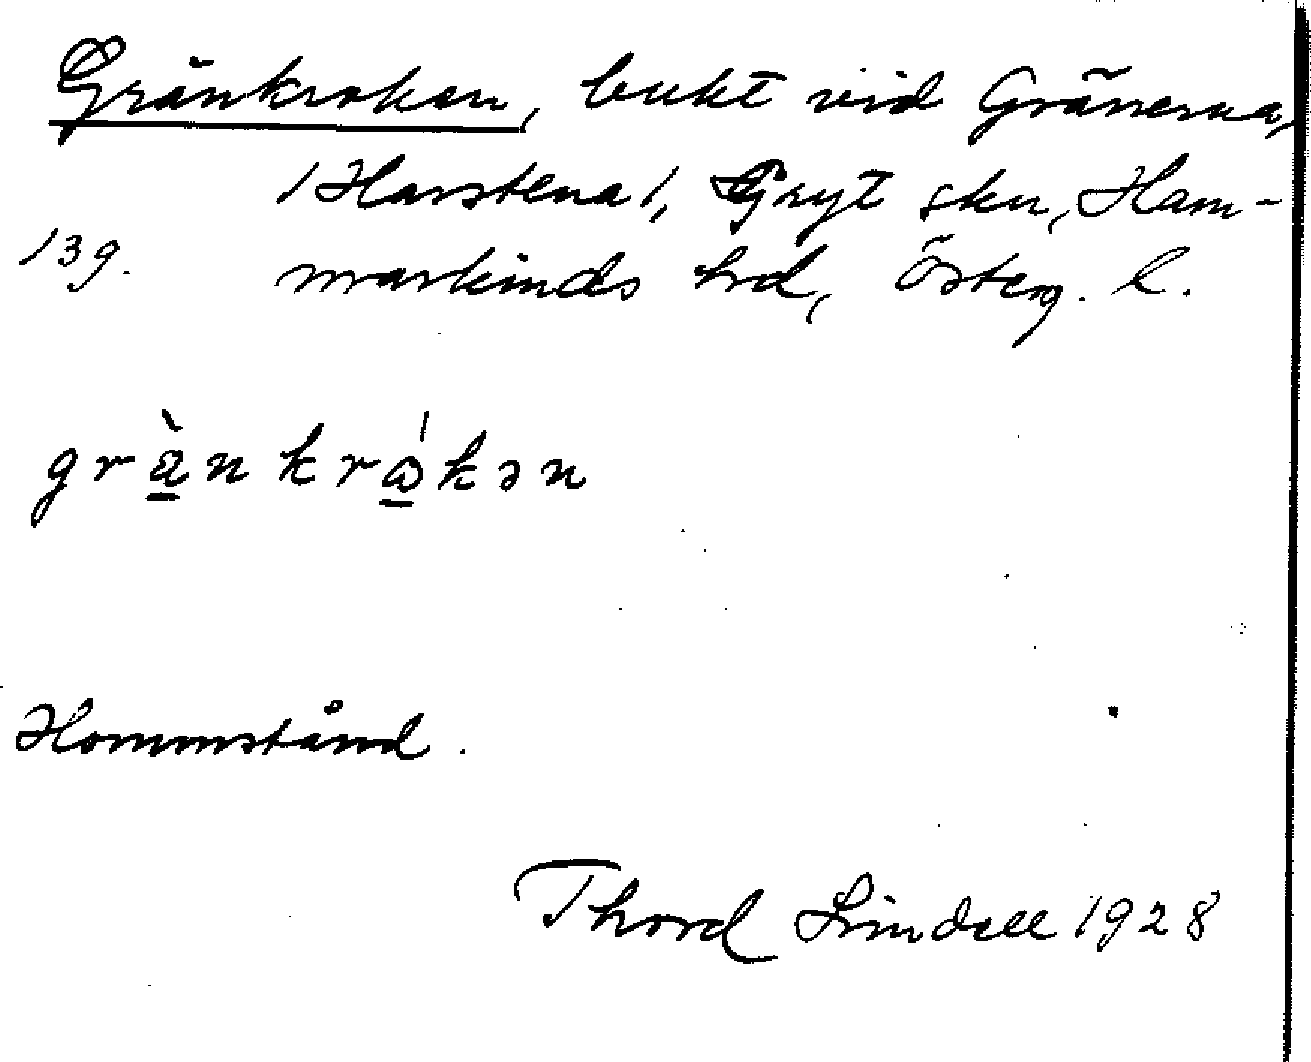 Gränkroken, bukt vid Gränerna,
/Harstena/, Gryt skn, Ham-
139. markinds hd, Österg. l.
grä̀nkrɷ́kən
Hommstånd.
Thord Lindell 1928